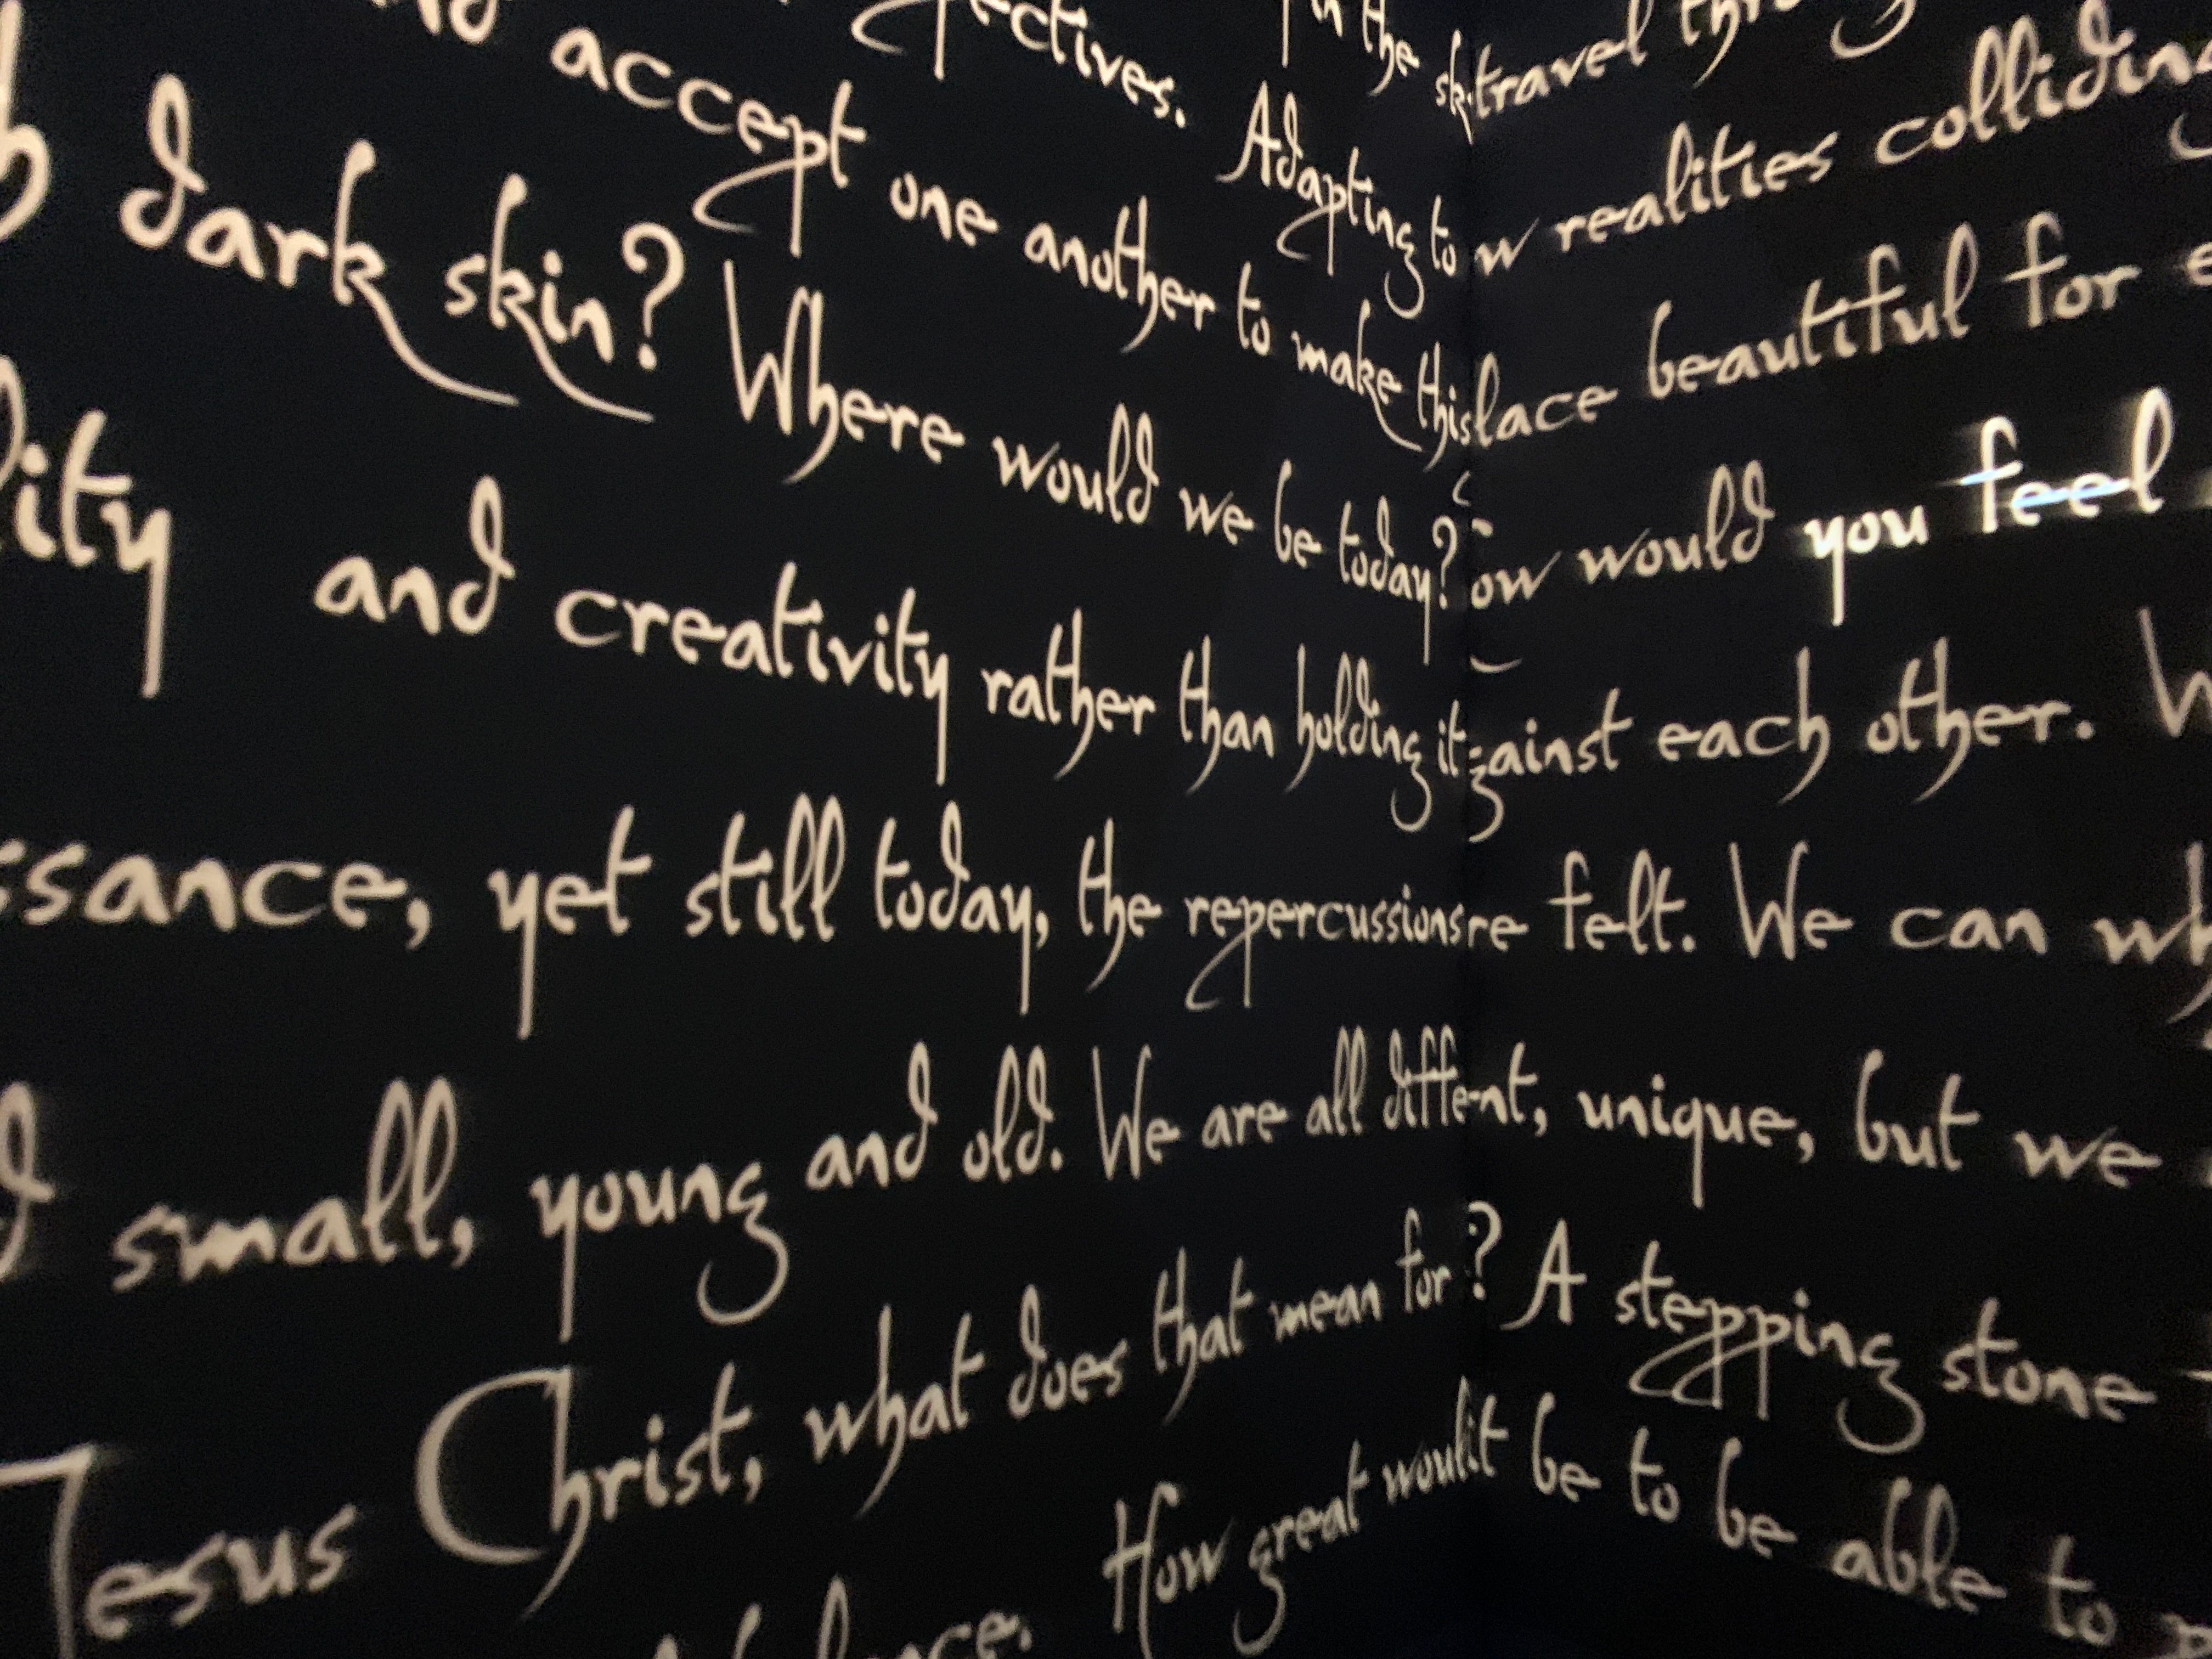 in the sk travel
Adapting to w realities colliding
accept one another to make this lace beautiful for
dark skin? Where would we be today? ow would you feel
and creativity rather than holding it gainst each other.
yet still today, the repercussions re felt. We can
small, young and old. We are all diffe nt, unique, but we
Jesus Christ, what does that mean for ? A stepping stone
How great woul it be to be able to